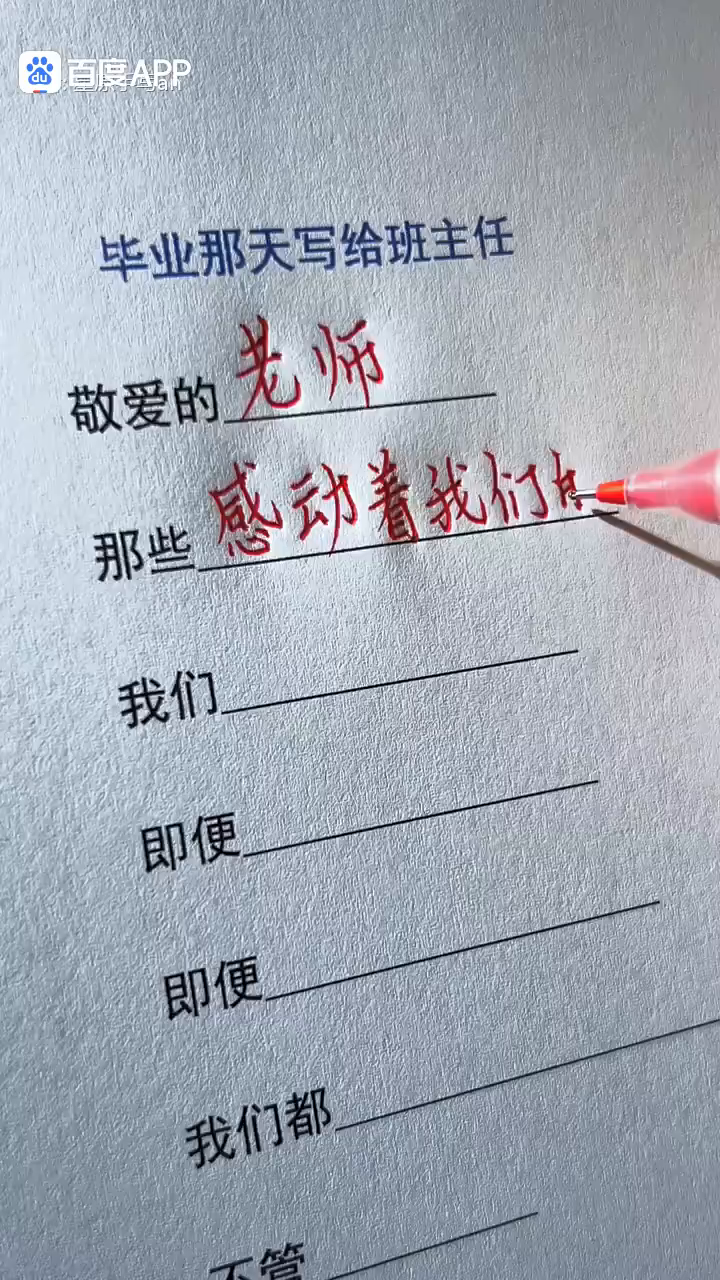 百度APP
毕业那天写给班主任
敬爱的老师
那些感动着我们
我们
即便
即便
我们都
不管